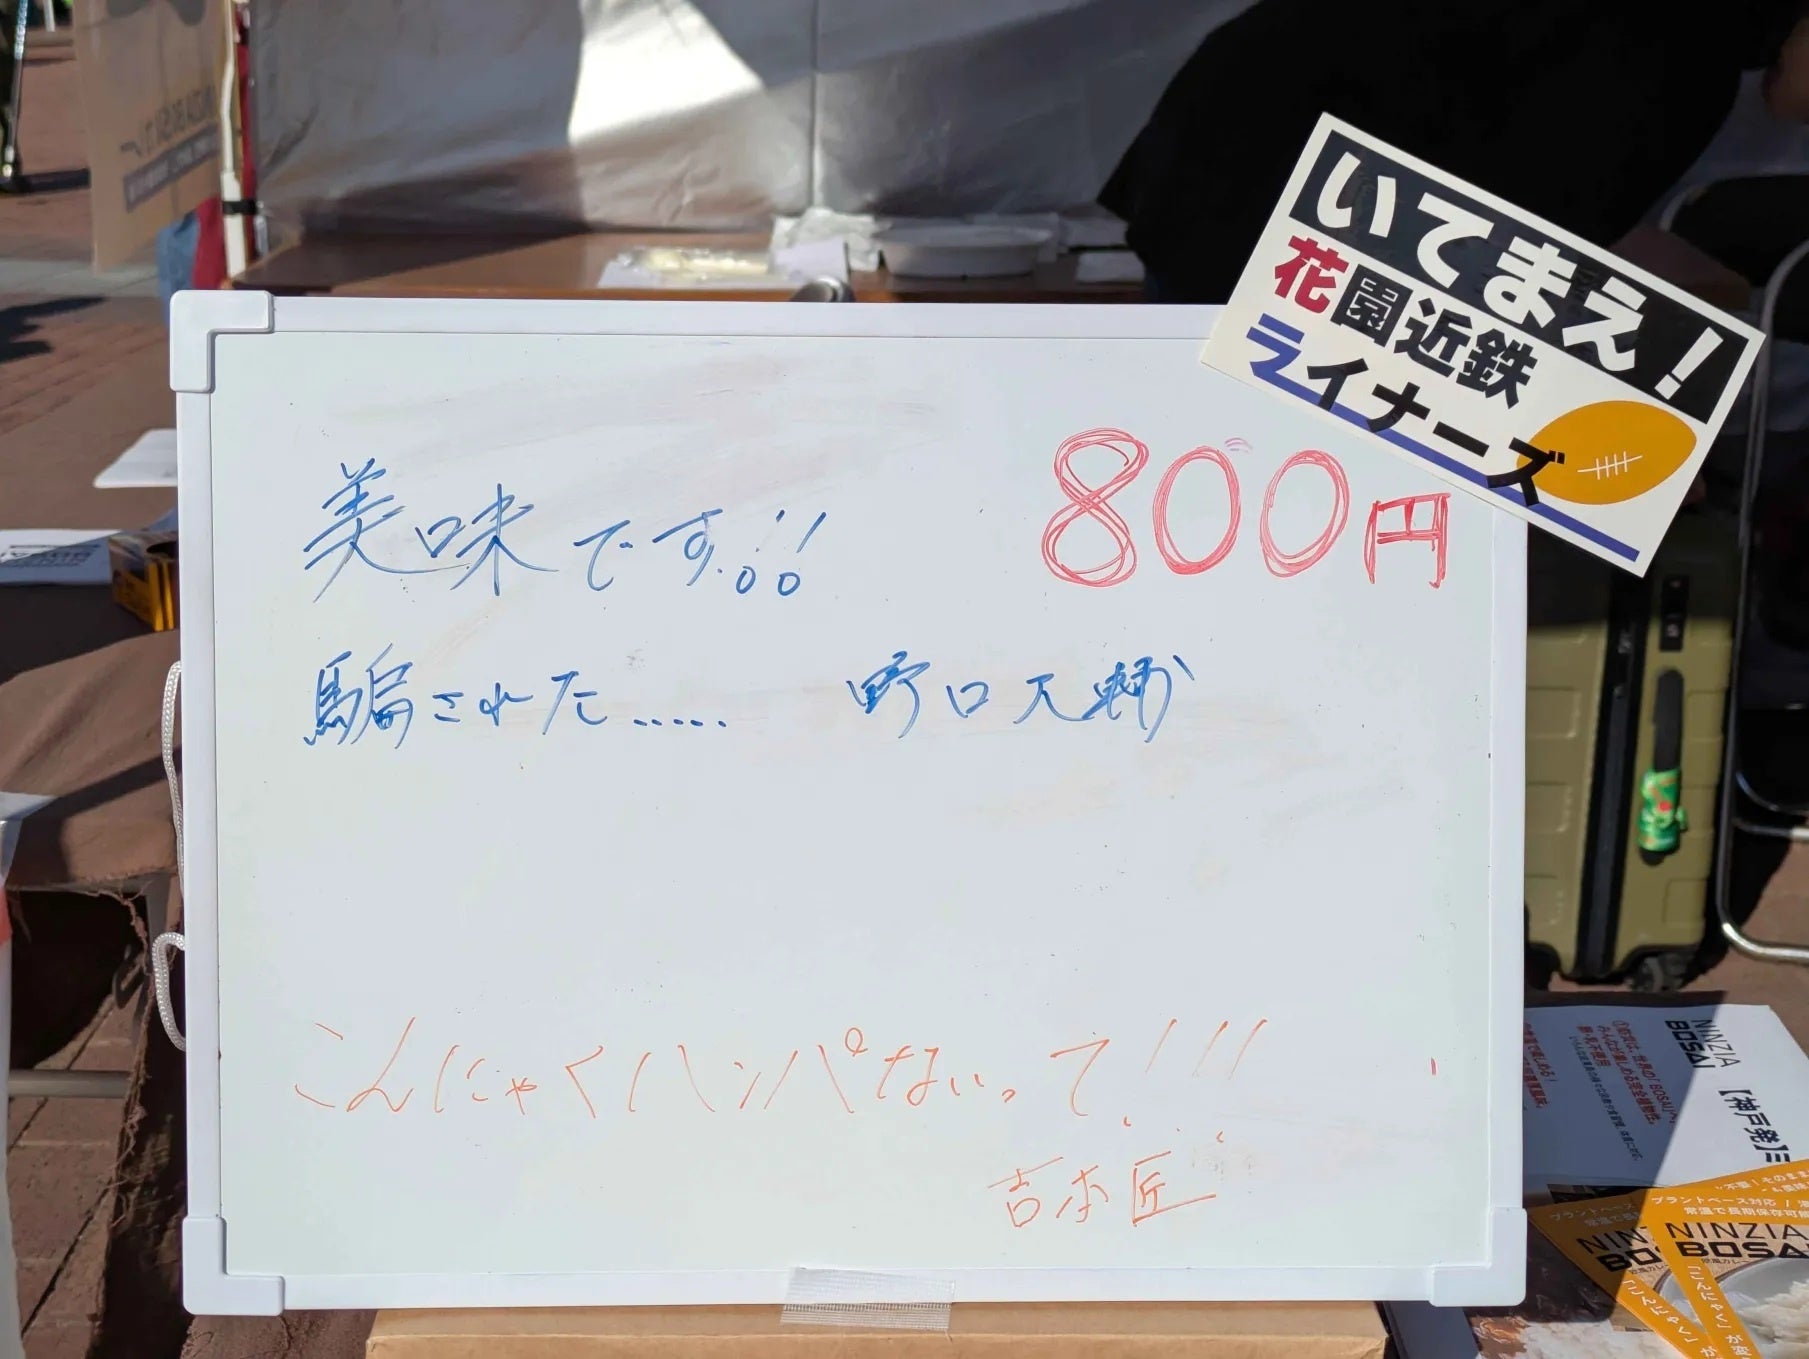 いてまえ!
花園近鉄
ライナーズ
800円
美味です!!
騙された..... 野口大輔
こんにゃくハンパないって!!!
吉本匠
NINZIA
BOSAI
【神戸発】
プラントベース対応！
常温で長期保存可能
NINZIA
BOSAI
「こんにゃく」が変